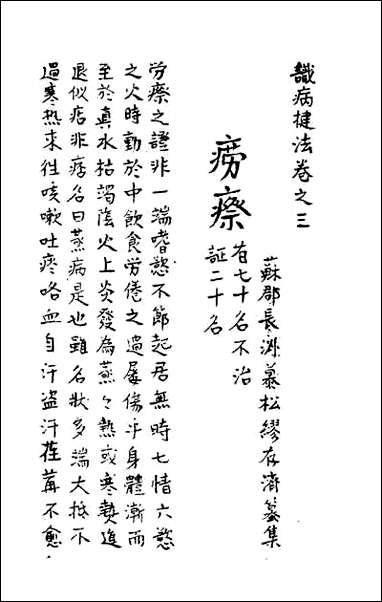 識病捷法卷之三
蘇郡長洲慕松繆存濟纂集
癆瘵
有七十名不治
証二十名
労瘵之證非一端嗜慾不節起居無時七情六慾
之火時動於中飲食労倦之過屡傷乎身體漸而
至於真水枯竭陰火上炎發為蒸々熱或寒熱進
退似瘧非瘧名曰蒸病是也雖名状多端大抵不
過寒热來徃咳嗽吐痰咯血自汗盗汗荏苒不愈